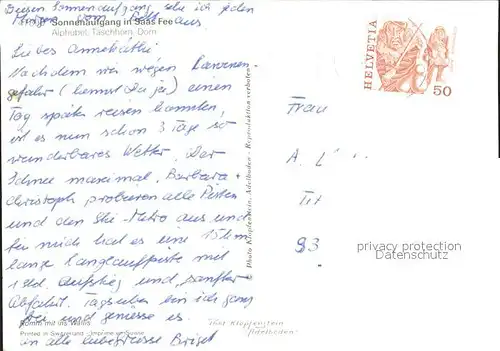 Diesen Sonnenaufgang sehe ich jeden
Morgen vom Bett aus
Sonnenaufgang in Saas Fee
Alphubel, Täschhorn, Dom
Liebes Annekäthi
Nachdem wir wegen Lawinen-
gefahr (kennst Du ja) einen
Tag später reisen konnten,
ist es nun schon 3 Tage so
wunderbares Wetter. Der
Schnee maximal. Barbara +
Christoph probieren alle Pisten
und den Ski-Metro aus und
für mich hat es eine 15 km
lange Langlaufpiste mit
1 Std. Aufstieg und sanfter
Abfahrt. Tagsüber bin ich ganz
frei und geniesse es.
Komm mit ins Wallis
Printed in Switzerland - Imprimé en Suisse
an alle liebe Grüsse Briget
© Photo Klopfenstein, Adelboden - Reproduktion verboten
HELVETIA
50
Frau
A. L
93
privacy protection
Datenschutz
Phot Klopfenstein
Adelboden